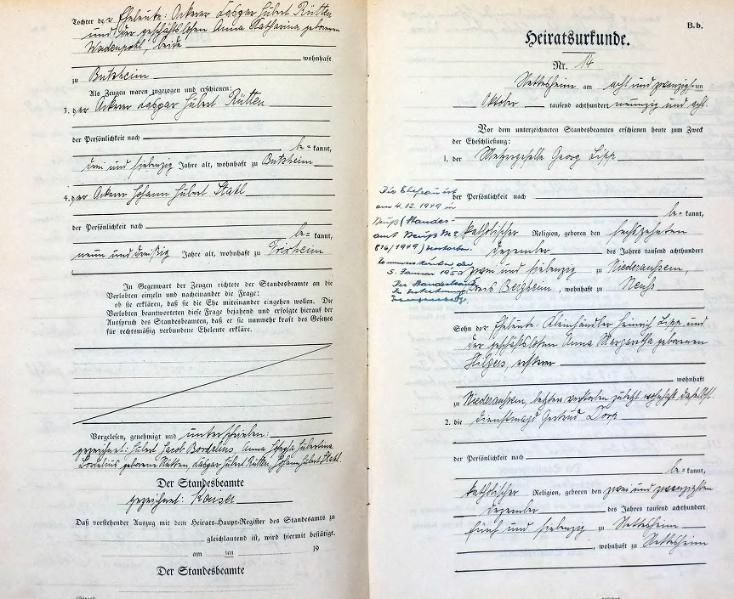 Tochter der Eheleute: Ackerer Hubert Rütten
und der geschäftslosen Anna Katharina, geborenen
beide
wohnhaft
zu Butzheim
Als Zeugen waren zugezogen und erschienen:
3. der Ackerer Hubert Rütten
der Persönlichkeit nach
be= kannt,
drei und siebenzig Jahre alt, wohnhaft zu Butzheim
4. der Ackerer Johann Hubert Stahl
der Persönlichkeit nach
be= kannt,
neun und dreißig Jahre alt, wohnhaft zu Frixheim
In Gegenwart der Zeugen richtete der Standesbeamte an die
Verlobten einzeln und nacheinander die Frage:
ob sie erklären, daß sie die Ehe miteinander eingehen wollen. Die
Verlobten beantworteten diese Frage bejahend und erfolgte hierauf der
Ausspruch des Standesbeamten, daß er sie nunmehr kraft des Gesetzes
für rechtmäßig verbundene Eheleute erkläre.
Vorgelesen, genehmigt und unterschrieben:
gezeichnet: Hubert Jacob Anna Hubertina
geborene Rütten, Hubert Rütten, Johann Hubert Stahl
Der Standesbeamte
gezeichnet:
Daß vorstehender Auszug mit dem Heirats-Haupt-Register des Standesamts zu
gleichlautend ist, wird hiermit bestätigt.
am ten 19
Der Standesbeamte
B.b.
Heiratsurkunde.
Nr. 14
Nettesheim am acht und zwanzigsten
Oktober tausend achthundert neunzig und acht.
Vor dem unterzeichneten Standesbeamten erschienen heute zum Zweck
der Eheschließung:
1. der Metzgergeselle Georg Lipp
der Persönlichkeit nach
be= kannt,
katholischer Religion, geboren den sechszehnten
Dezember des Jahres tausend achthundert
zwei und siebenzig zu Niederaussem,
Kreis Bergheim, wohnhaft zu Neuß
Die Ehefrau ist
am 4.12.1949 in
Neuß (Standes-
amt Neuß Nr.
/1949) verstorben.
den
5. Januar
Der Standesbeamte
Sohn der Eheleute: Kleinhändler Heinrich Lipp und
der geschäftslosen Anna Margaretha geborenen
Hilgers, ersterer
wohnhaft
zu Niederaussem, letztere verstorben zuletzt wohnhaft daselbst.
2. die Dienstmagd Gertrud
der Persönlichkeit nach
be= kannt,
katholischer Religion, geboren den zwei und zwanzigsten
Dezember des Jahres tausend achthundert
fünf und siebenzig zu Nettesheim
, wohnhaft zu Nettesheim